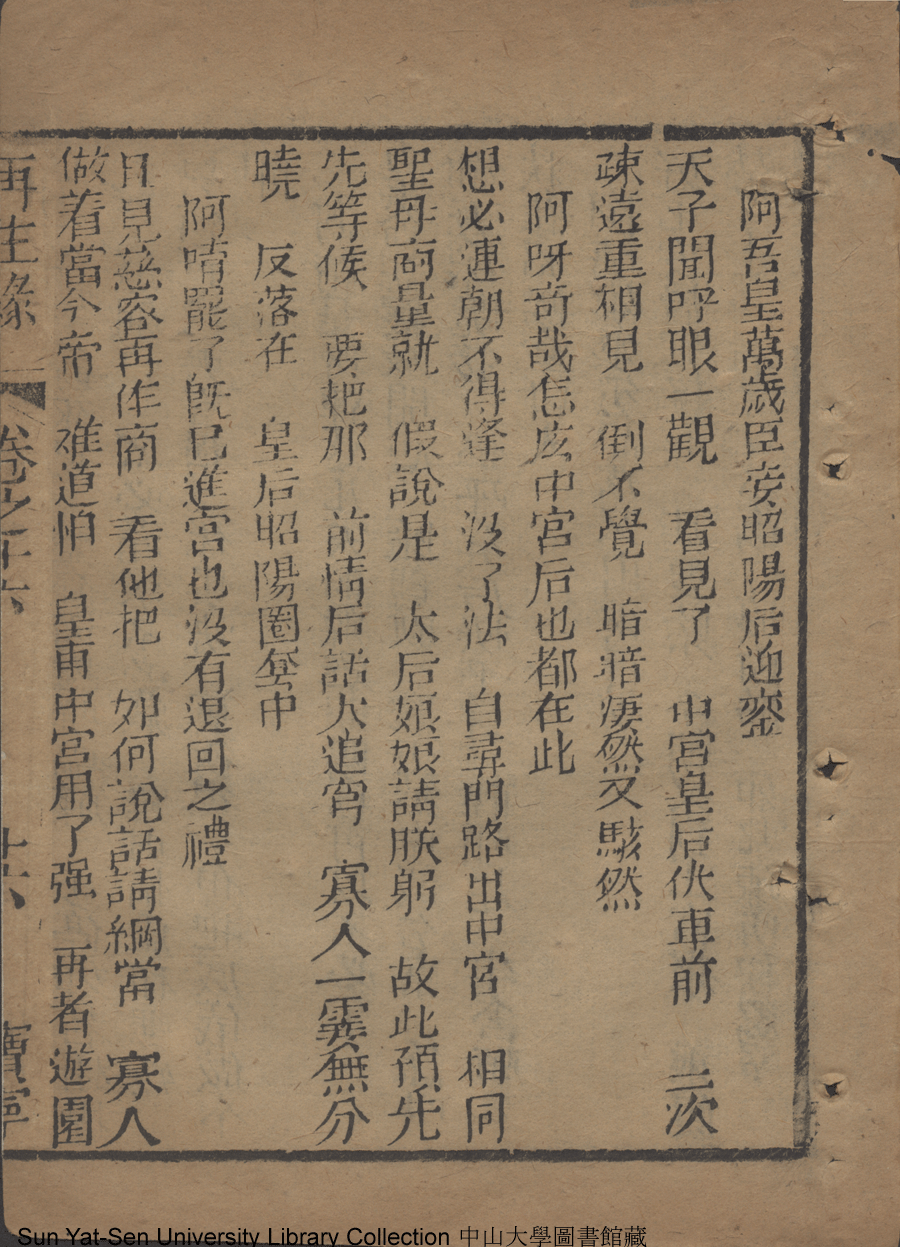 阿吾皇萬歲臣妾昭陽后迎鑾
天子聞呼眼一觀　看見了　中宮皇后伏車前　二次
疎遠重相見　倒不覺　暗暗凄然又駭然
阿呀奇哉怎庅中宮后也都在此
想必連朝不得逢　没了法　自尋門路出中宮　相同
聖母商量就　假說是　太后娘娘請朕躬　故此預先
先等候　要把那　前情后話大追窮　寡人一霎無分
曉　反落在　皇后昭陽圈套中
阿唶罷了旣已進宮也没有退回之禮
且見慈容再作商　看他把　如何說話請綱常　寡人
做着當今帝　难道怕　皇甫中宮用了强　再者遊園
再生緣　卷之十六　十六　寶寧
Sun Yat-Sen University Library Collection 中山大學圖書館藏